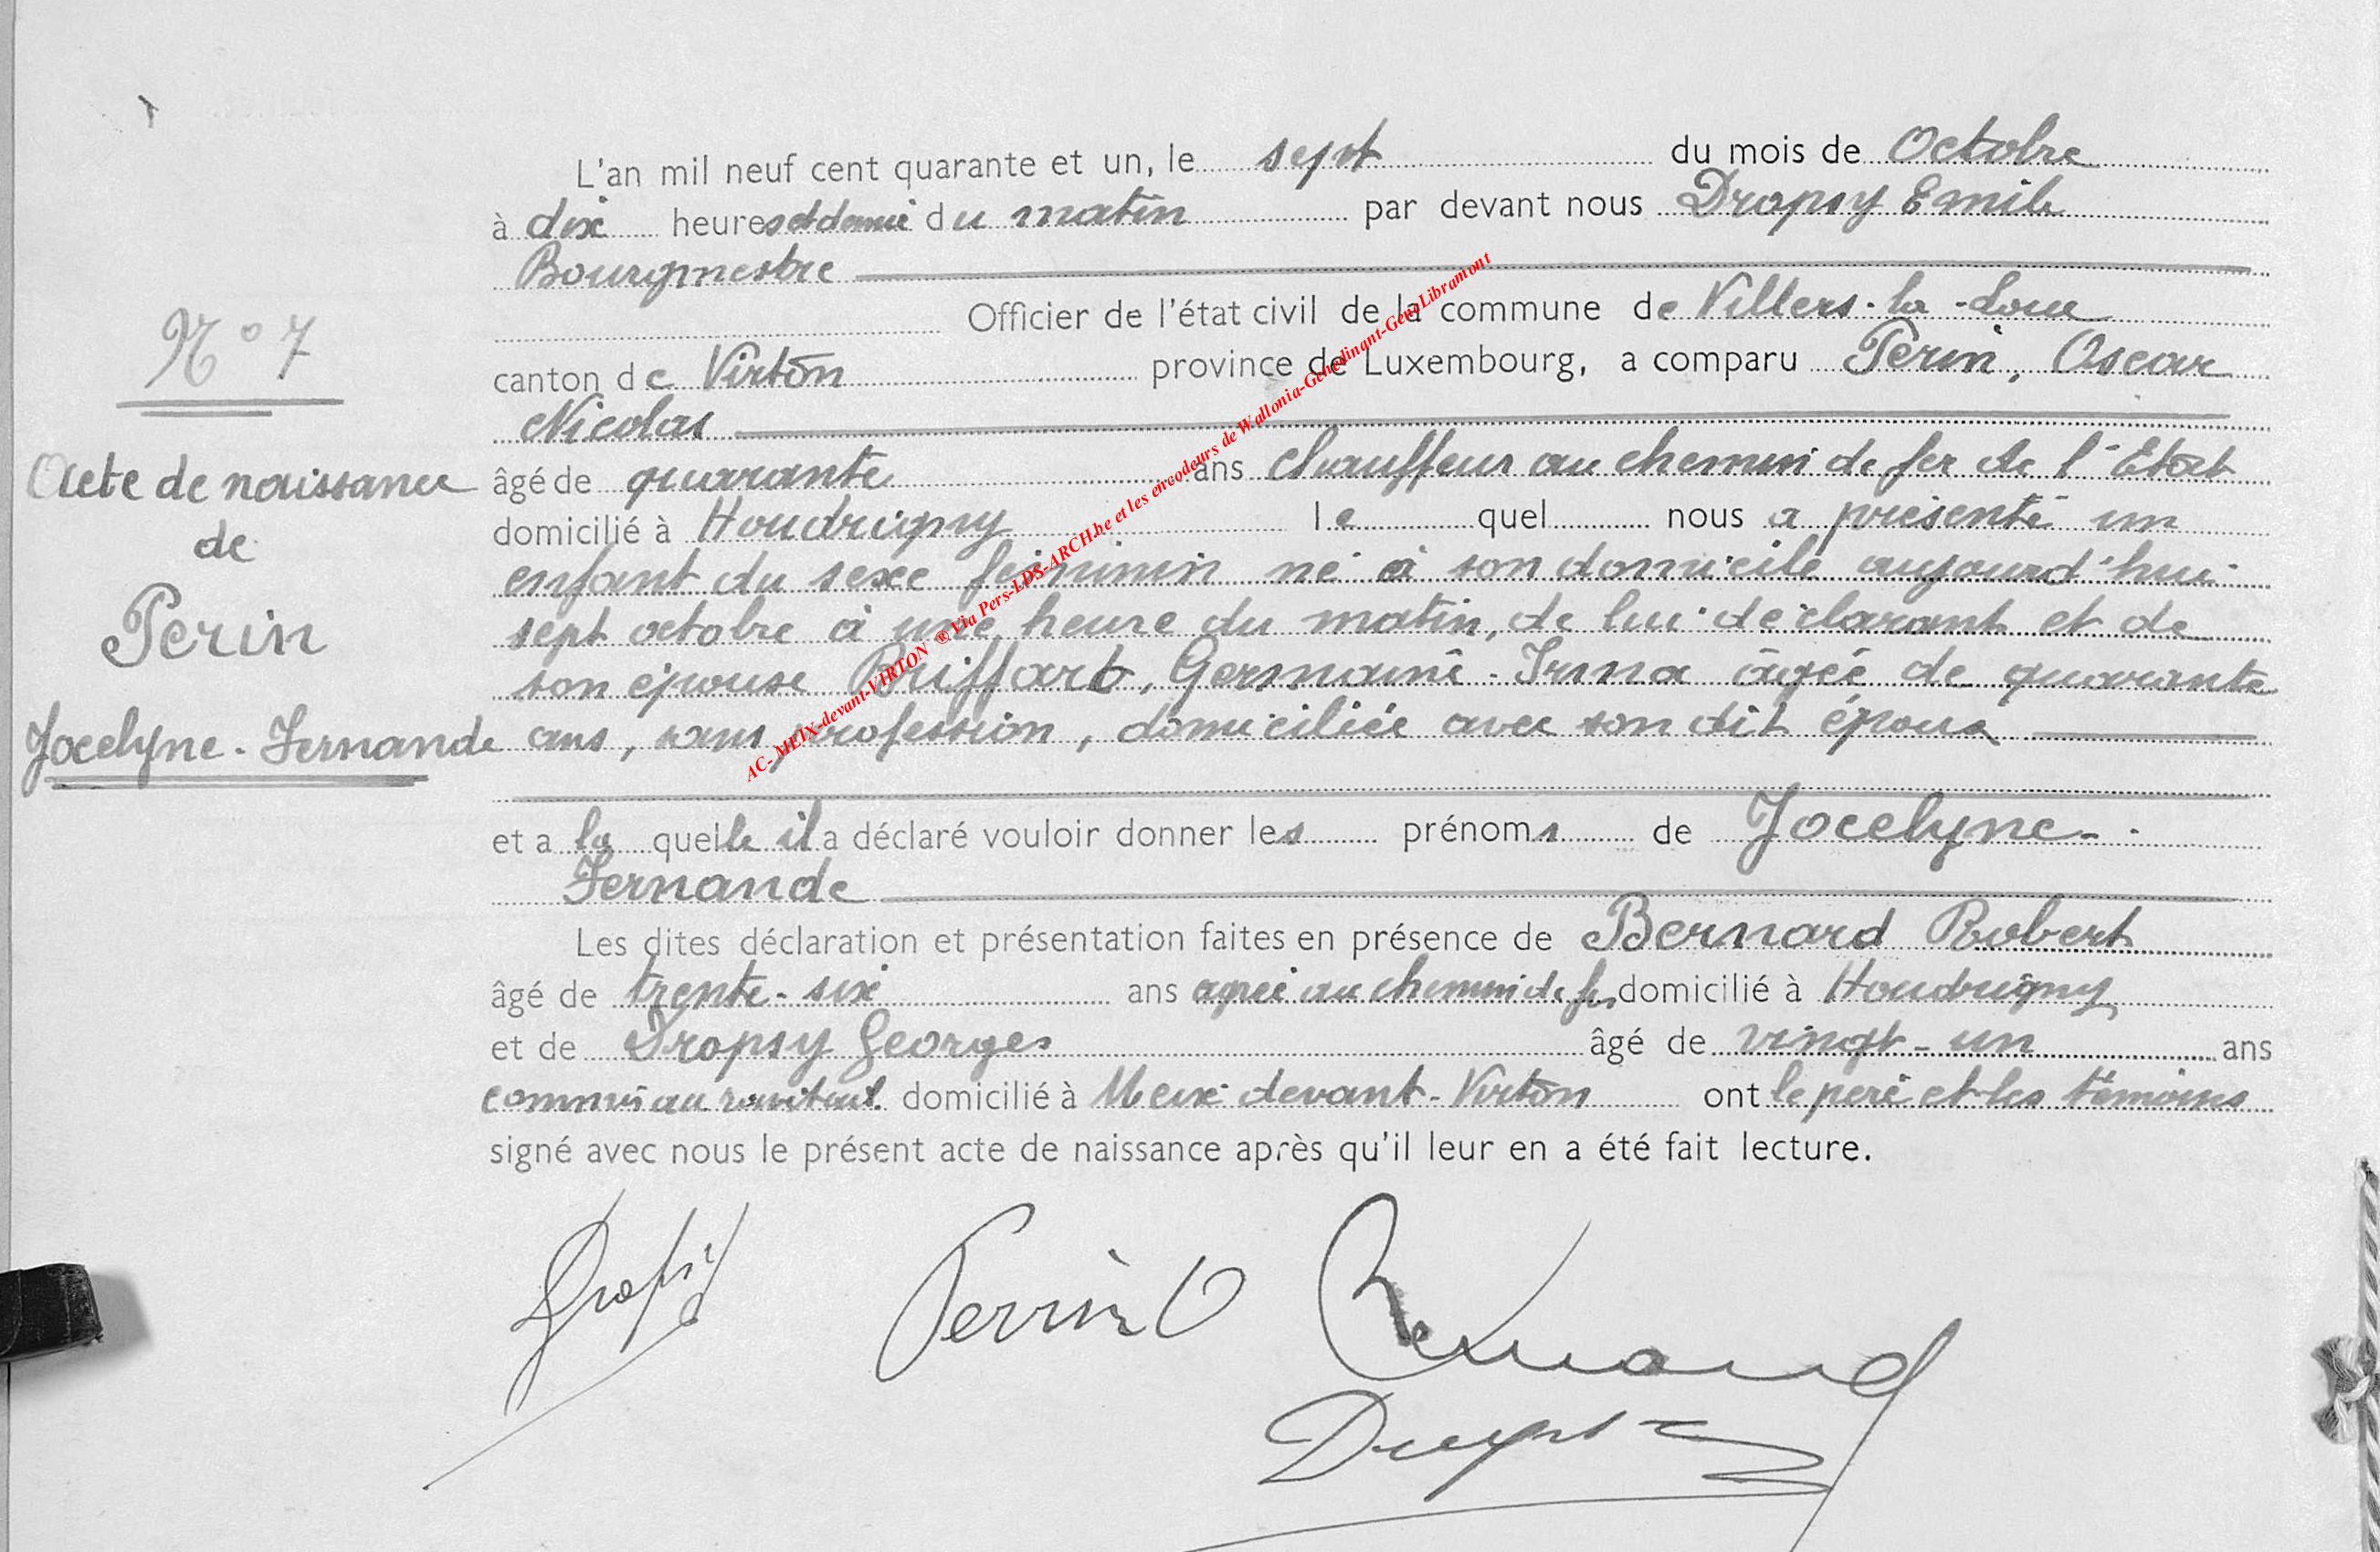 L'an mil neuf cent quarante et un, le sept du mois de Octobre
à dix heures et demie du matin par devant nous Dropsy Emile
Bourgmestre
Officier de l'état civil de la commune de Villers-la-Loue
canton de Virton province de Luxembourg, a comparu Perin, Oscar
Nicolas
âgé de quarante ans chauffeur au chemin de fer de l'Etat
domicilié à Houdrigny le quel nous a présenté un
enfant du sexe féminin né à son domicile aujourd'hui
sept octobre à une heure du matin, de lui déclarant et de
son épouse Briffart, Germaine-Irma âgée de quarante
ans, sans profession, domiciliée avec son dit époux
et a la quelle il a déclaré vouloir donner les prénoms de Jocelyne-
Fernande
Les dites déclaration et présentation faites en présence de Bernard Robert
âgé de trente-six ans agréé au chemin de fer domicilié à Houdrigny
et de Dropsy Georges âgé de vingt-un ans
commis au ravitail. domicilié à Meix devant-Virton ont le père et les témoins
signé avec nous le présent acte de naissance après qu'il leur en a été fait lecture.
N° 7
Acte de naissance
de
Perin
Jocelyne-Fernande
AC- MEIX-devant-VIRTON ® Via Pers-LDS-ARCH.be et les encodeurs de Wallonia-Genedinant-GeneLibramont
Dropsy
Perrin O
Bernard
Dropsy